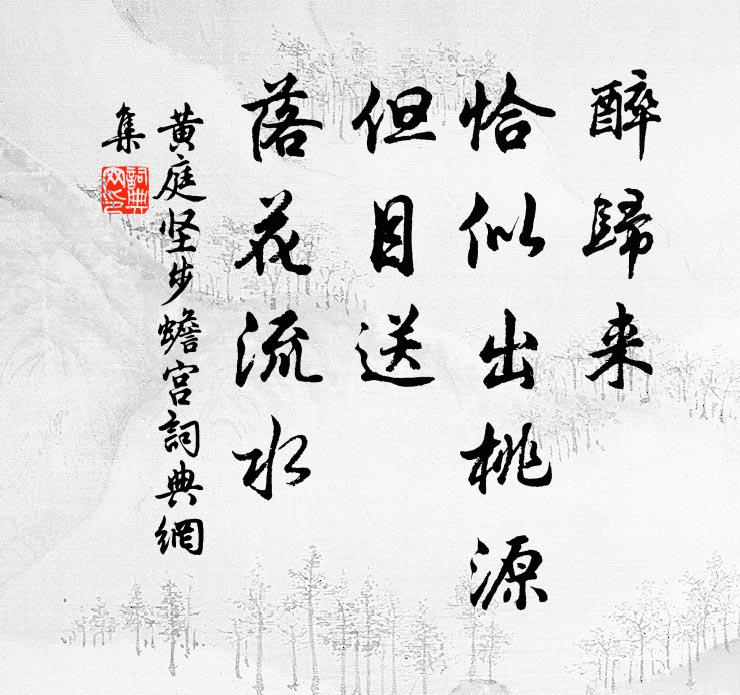 醉歸来
恰似出桃源
但目送
落花流水
黄庭坚步蟾宫詞典網
集
詞典網印